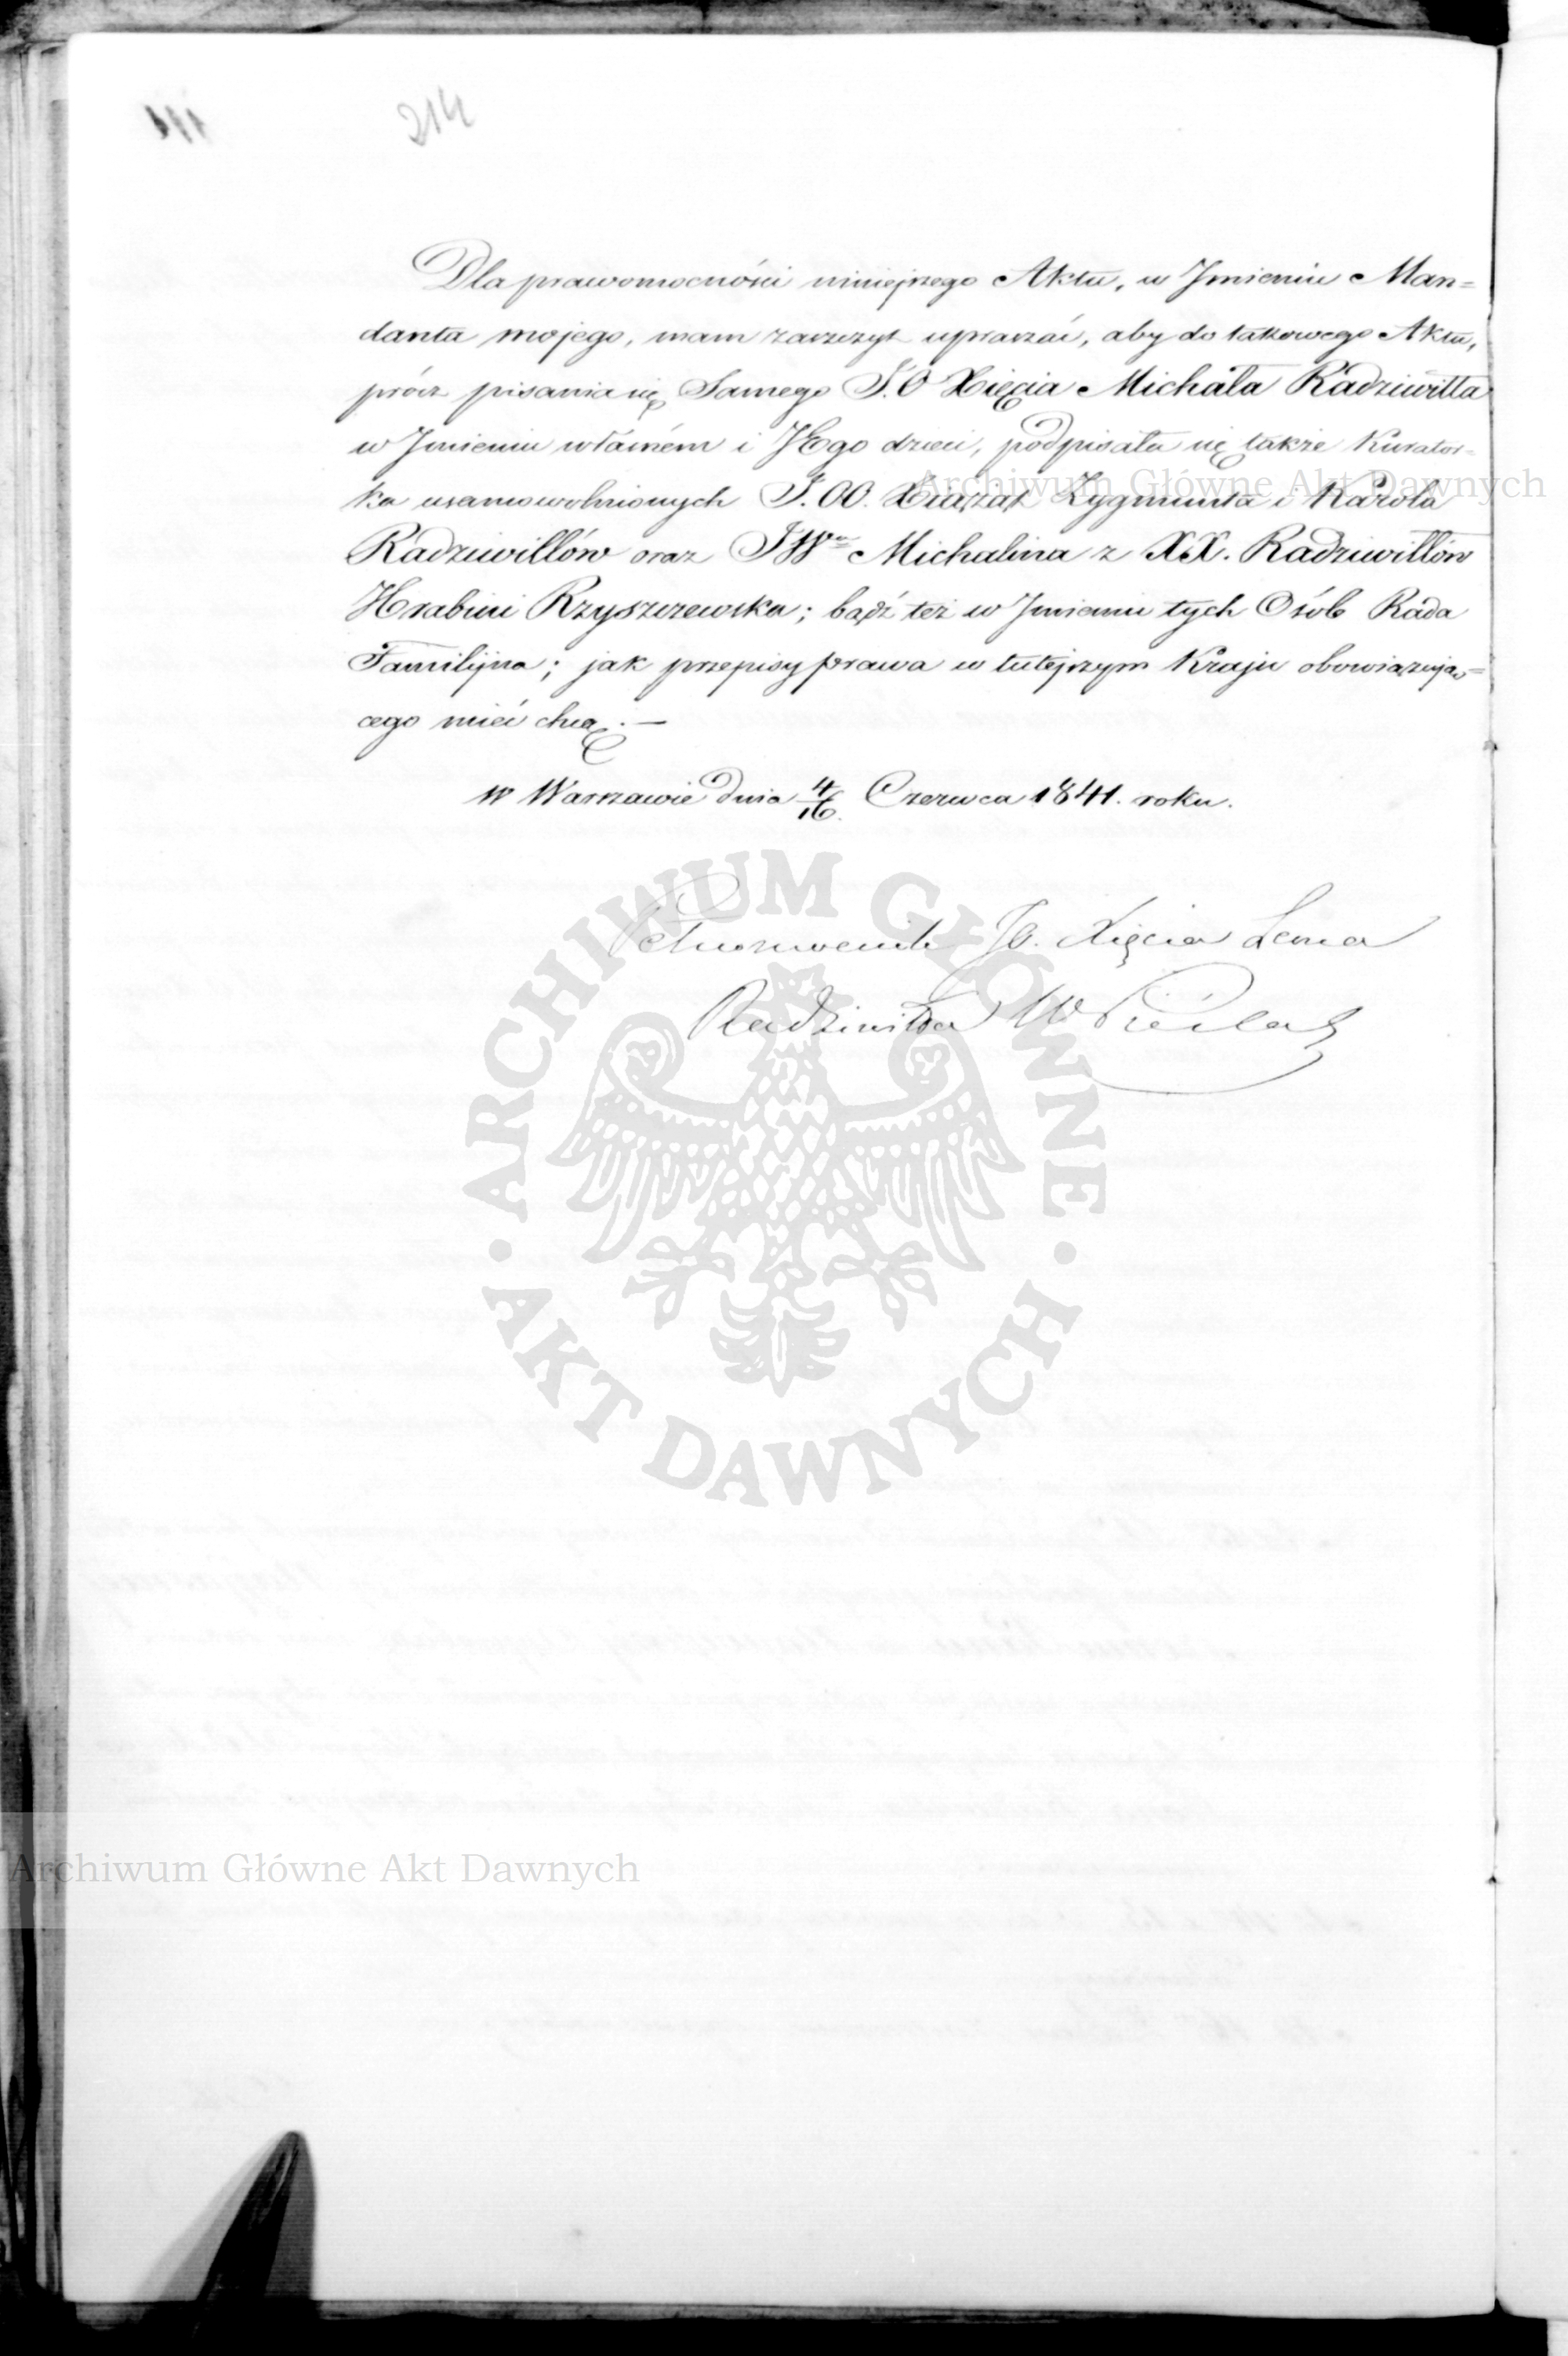 214
Dla prawomocności niniejszego Aktu, w Jmieniu Man=
danta mojego, mam zaszczyt upraszać, aby do takowego Aktu,
prócz pisania się Samego J.O Xięcia Michała Radziwiłła
w Jmieniu własném i JEgo dzieci, podpisała się także Kurator=
ka usamowolnionych J.OO. Xiążąt Zygmunta i Karola
Radziwiłłów oraz JW^na Michalina z XX. Radziwiłłów
Hrabini Rzyszczewska; bądź też w Jmieniu tych Osób Rada
Familijna; jak przepisy prawa w tutejszym Kraju obowiązują=
cego mieć chcą.—
w Warszawie dnia 4/16. Czerwca 1841. roku.
Pełnomocnik JO. Xięcia Leona
Radziwiłła
Archiwum Główne Akt Dawnych
ARCHIWUM GŁÓWNE · AKT DAWNYCH ·
Archiwum Główne Akt Dawnych